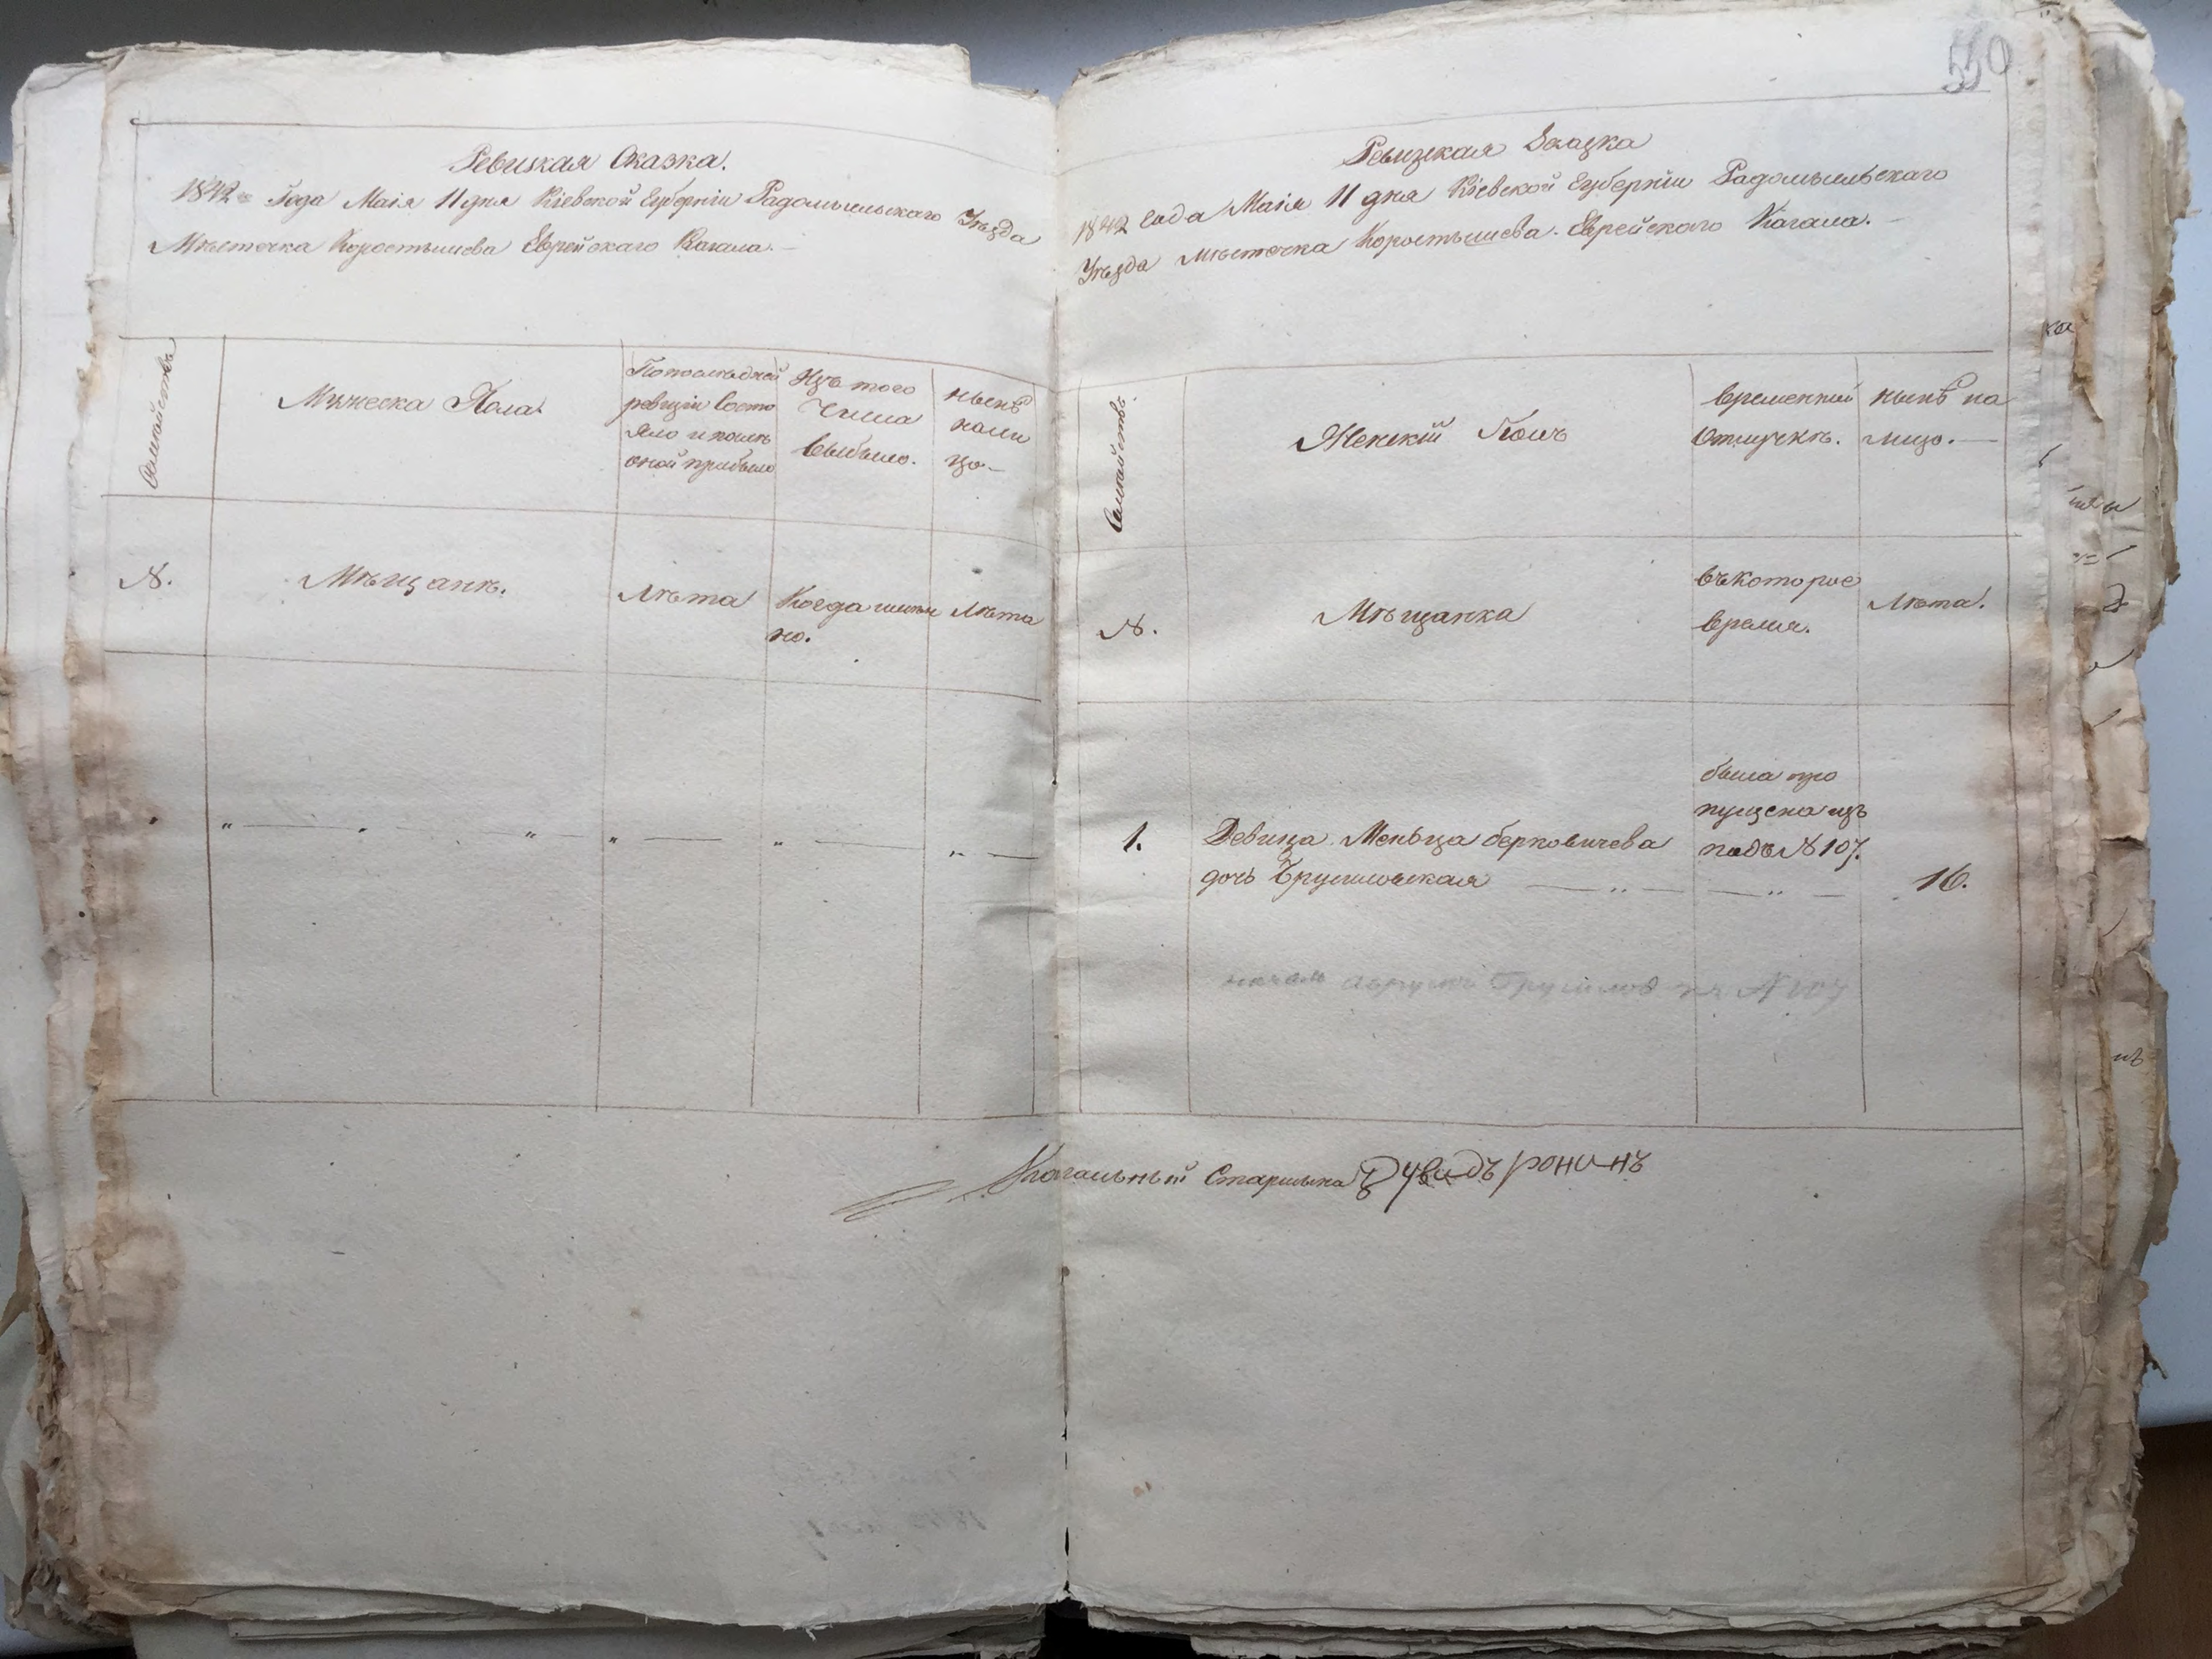 550
Ревизкая Сказка.
1842 = Года Маія 11 дня Кіевской Губерніи Радомысльскаго Уѣзда
Мѣстечка Коростышева Еврейскаго Кагала.
Семѣйствъ
Мужеска Пола
По послѣдней
ревизіи Состо
яло и послѣ
оной прибыло
Изъ того
Числа
Выбыло.
нынѣ
нали
цо.
№.
Мѣщанѣ.
Лѣта
Когда имян
но.
Лѣта
Ревизкая Сказка
1842 Года Маія 11 дня Кіевской Губерніи Радомысльскаго
Уѣзда мѣстечка Коростышева. Еврейскаго Кагала.
Семѣйствъ
Женскій Полъ
Временний
Отлучкѣ.
нынѣ на
лицо.
№.
Мѣщанка
въ которое
время.
Лѣта.
была про
пущена изъ
подъ № 107.
1. Девица Меньца берковичева
дочь Брусиловская 16.
Кагальный Старшина Дувидъ Ронинъ